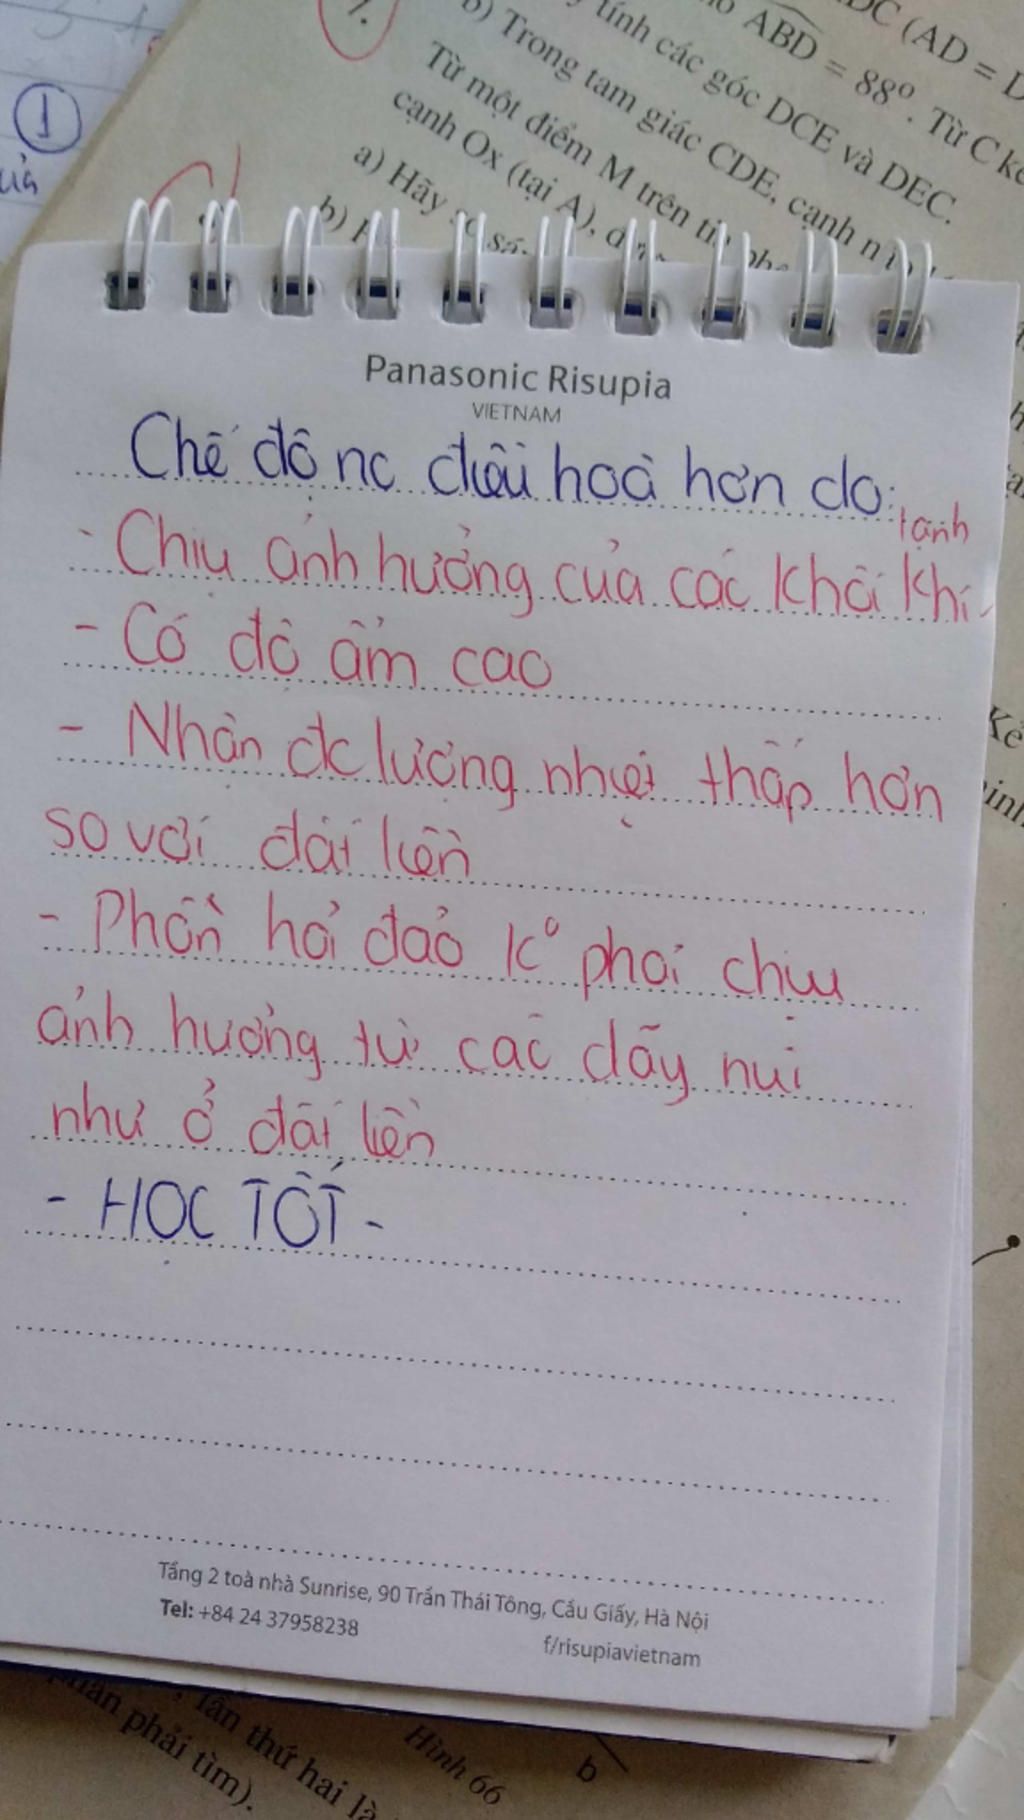 1
7.
ABD = 88º. Từ C kẻ
tính các góc DCE và DEC.
b) Trong tam giác CDE, cạnh
Từ một điểm M trên
cạnh Ox (tại A),
a) Hãy
b)
Panasonic Risupia
VIETNAM
Chế độ nc điều hoà hơn do:
- Chịu ảnh hưởng của các khối khí lạnh
- Có độ ẩm cao
- Nhận đc lượng nhiệt thấp hơn
so với đất liền
- Phần hải đảo kº phải chịu
ảnh hưởng từ các dãy núi
như ở đất liền
- HỌC TỐT -
Tầng 2 toà nhà Sunrise, 90 Trần Thái Tông, Cầu Giấy, Hà Nội
Tel: +84 24 37958238
f/risupiavietnam
lần thứ hai là
phải tìm).
Hình 66
b